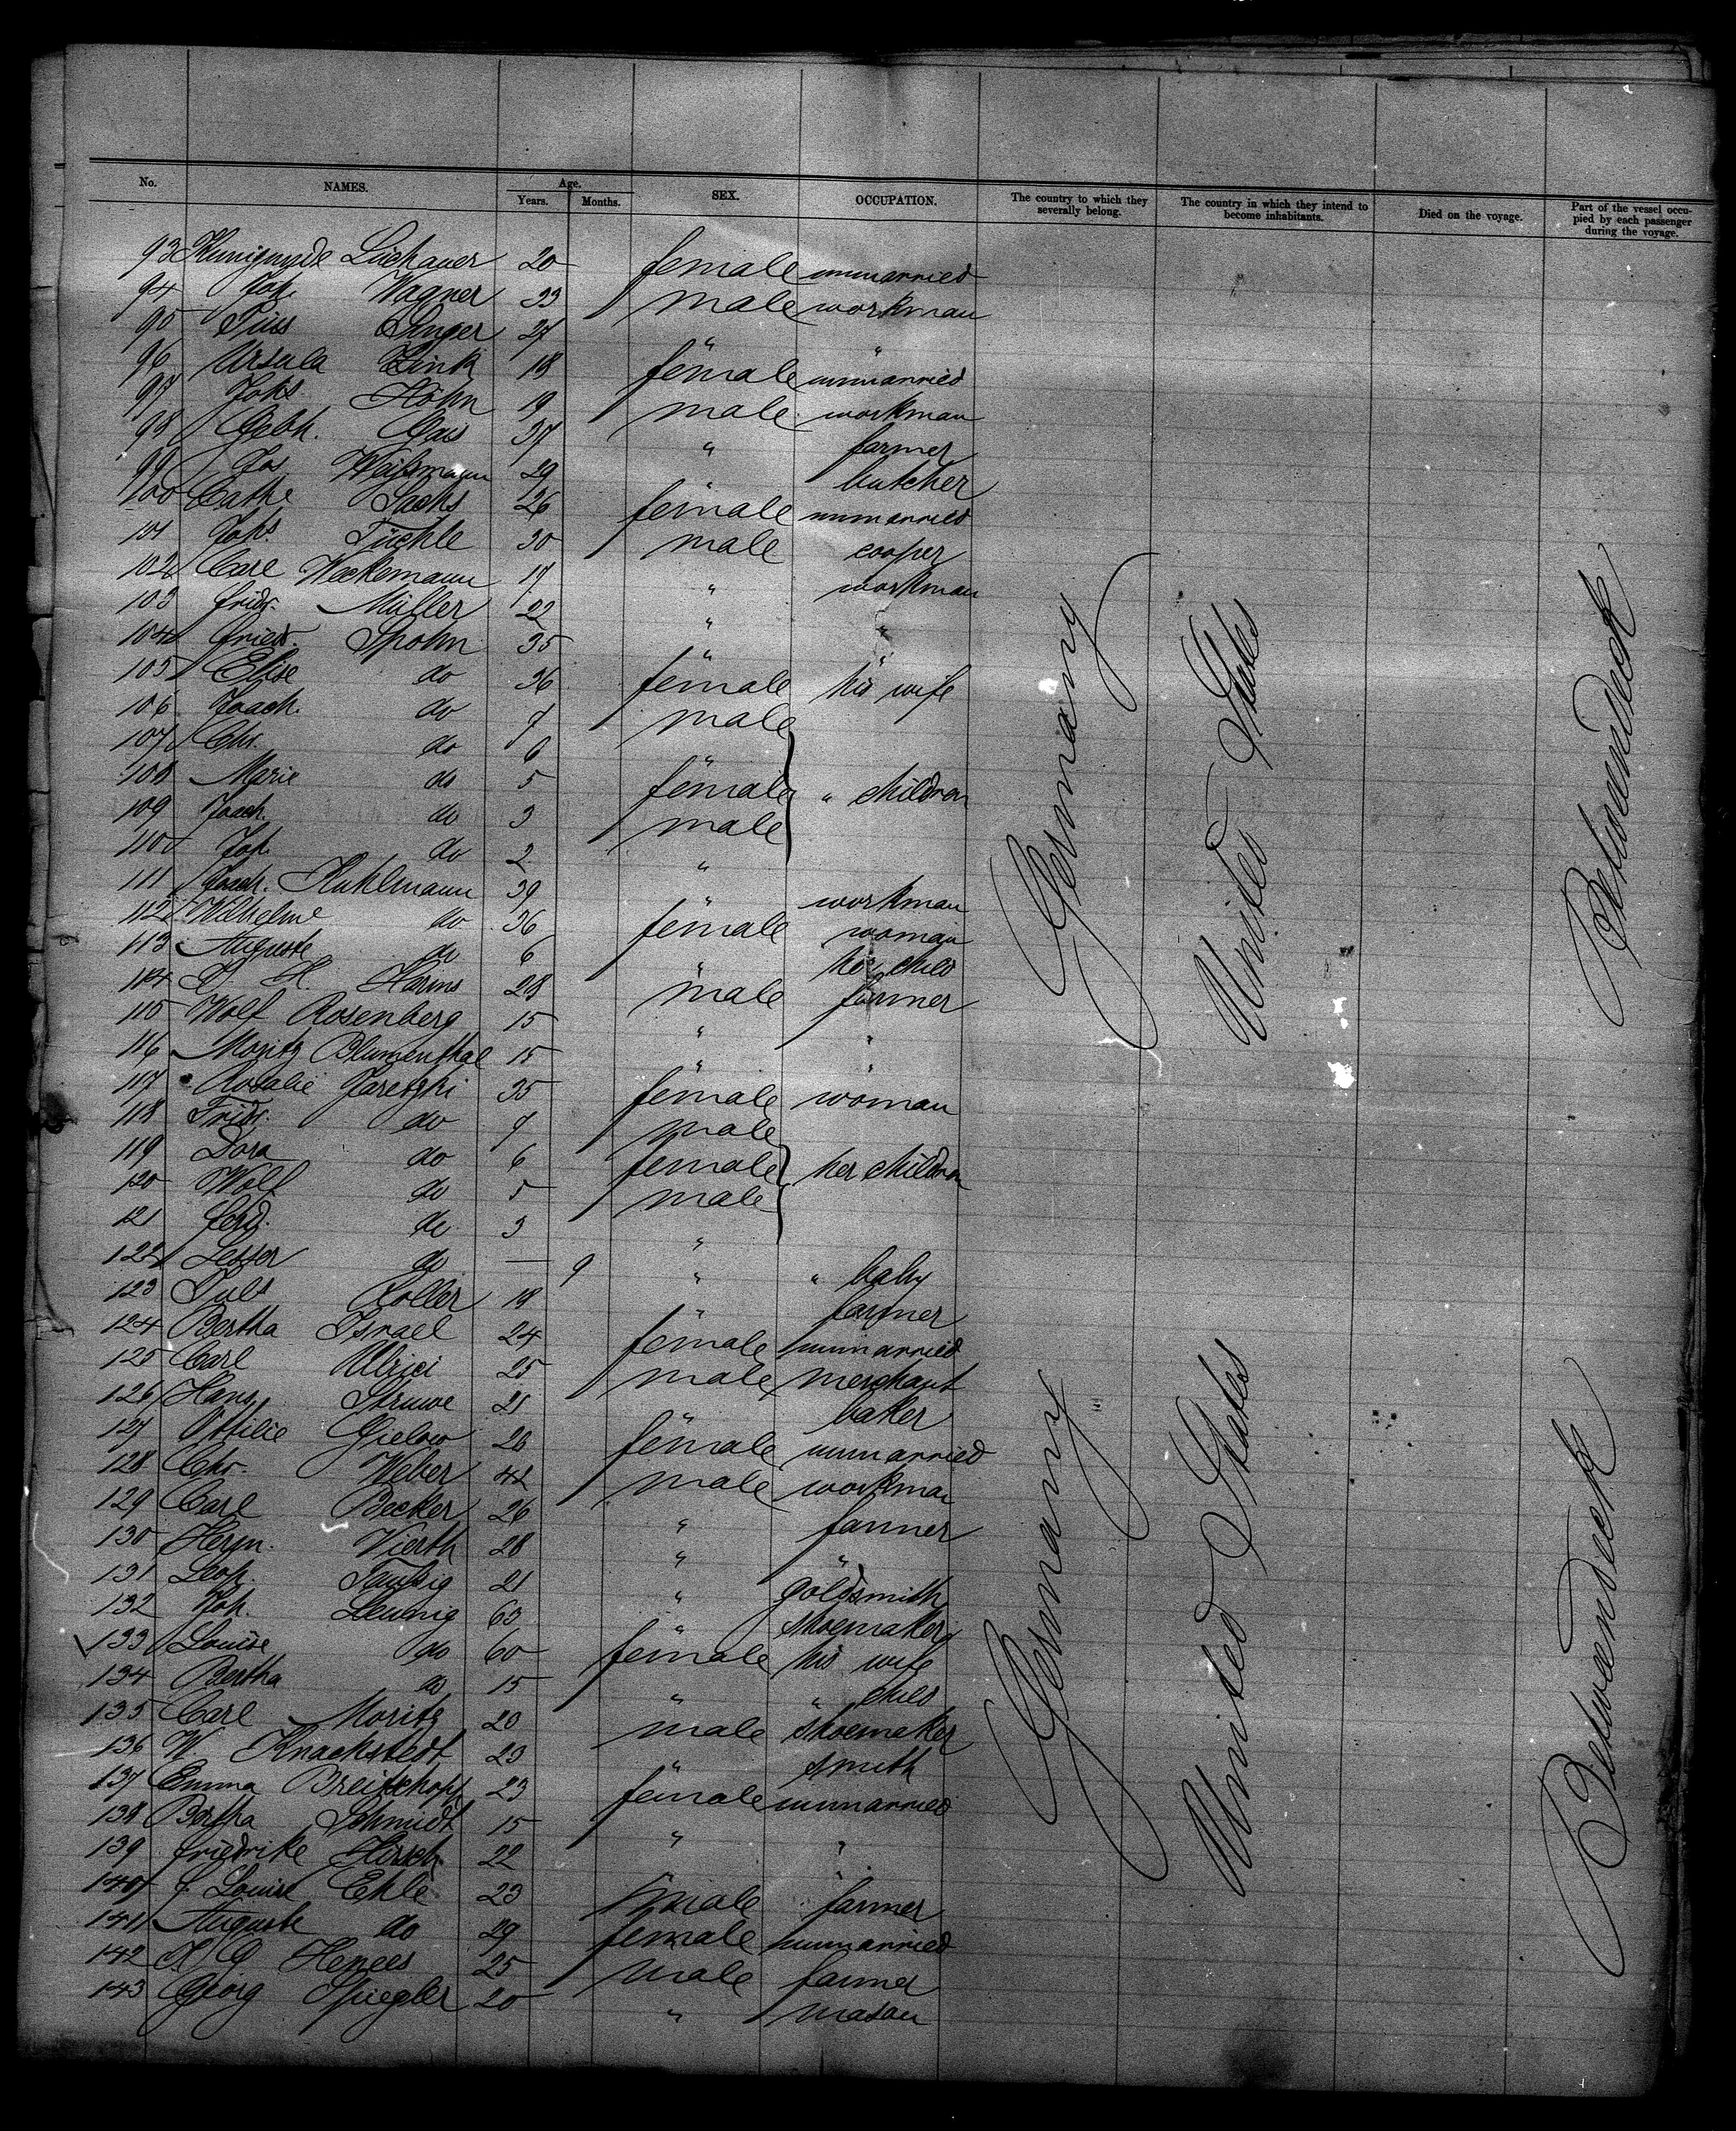 No. NAMES. Age. Years. Months. SEX. OCCUPATION. The country to which they severally belong. The country in which they intend to become inhabitants. Died on the voyage. Part of the vessel occupied by each passenger during the voyage.
93 Kunigunde 20 female unmarried
94 Joh. Wagner 23 male workman
95 Singer 27 " "
96 Ursula Zink 18 female unmarried
97 Johs. Höhn 19 male workman
98 Gebh. 37 " farmer
99 Jos Weißmann 29 " butcher
100 Cathe Sachs 26 female unmarried
101 Johs. Tüchle 30 male cooper
102 Carl Weckemann 17 " workman
103 Fridr. Müller 22 " "
104 Friedr. Spohn 35 " "
105 Elise do 36 female his wife
106 Joach. do 7 male
107 Chr. do 6 "
108 Marie do 5 female " children
109 Joach. do 3 male
110 Joh. do 2 "
111 Joach. Kuhlmann 39 " workman
112 Wilhelme do 36 female woman
113 Auguste do 6 " her child
114 H. Harms 28 male farmer
115 Wolf Rosenberg 15 " "
116 Moritz Blumenthal 15 " "
117 Rosalie Jaretzki 35 female woman
118 Fridr. do 7 male
119 Dora do 6 female her children
120 Wolf do 5 male
121 Ferd. do 3 "
122 Lesser do — 9 " " baby
123 Juls Roller 18 " farmer
124 Bertha Israel 24 female unmarried
125 Carl Ulrici 25 male merchant
126 Hans Struwe 21 " baker
127 Ottilie Gielow 26 female unmarried
128 Chr. Weber 42 male workman
129 Carl Becker 26 " farmer
130 Herm. Vierth 28 " "
131 Leop. Taußig 21 " goldsmith
132 Joh. Leunig 63 " shoemaker
133 Louise do 60 female his wife
134 Bertha do 15 " " child
135 Carl Moritz 20 male shoemaker
136 W. Knackstedt 23 " smith
137 Emma Breitkopf 23 female unmarried
138 Bertha Schmidt 15 " "
139 Friedrike Hirsch 22 " "
140 J. Louise Ehle 23 male farmer
141 Auguste do 29 female unmarried
142 G Henees 25 male farmer
143 Georg Spiegler 20 " mason
Germany United States Betweendeck
Germany United States Betweendeck